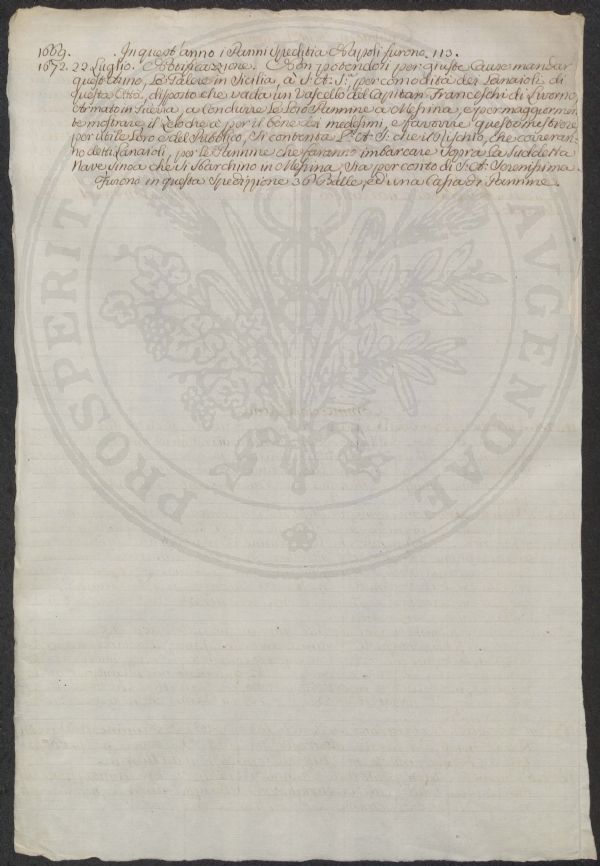 1669. In quest'anno i Panni Spediti a Napoli furono 113.
1672. 22 Luglio. Notificazione. Non potendosi per giuste Cause mandar
quest'anno, Le Galere in Sicilia, à S. A. S. per comodità dei Lanaioli di
questa Città, disposto che vada un Vascello del Capitan Franceschi di Livorno,
Armato in Guerra, a condurre Le Loro Pannine a Messina, e per maggiormen-
te mostrare il Zelo che à per il bene dei medesimi, e favorire questo mestiere
per utile Loro e del Pubblico, Si contenta L'A. S. che il Rischio, che correran-
no detti Lanaioli, per Le Pannine che faranno imbarcare Sopra La Suddetta
Nave Sino a che si Sbarchino in Messina, Sia per conto di S. A. Serenissima.
Furono in questa Spedizione 36 Balle, ed una Cassa di Pannine.
PROSPERITATI AUGENDAE